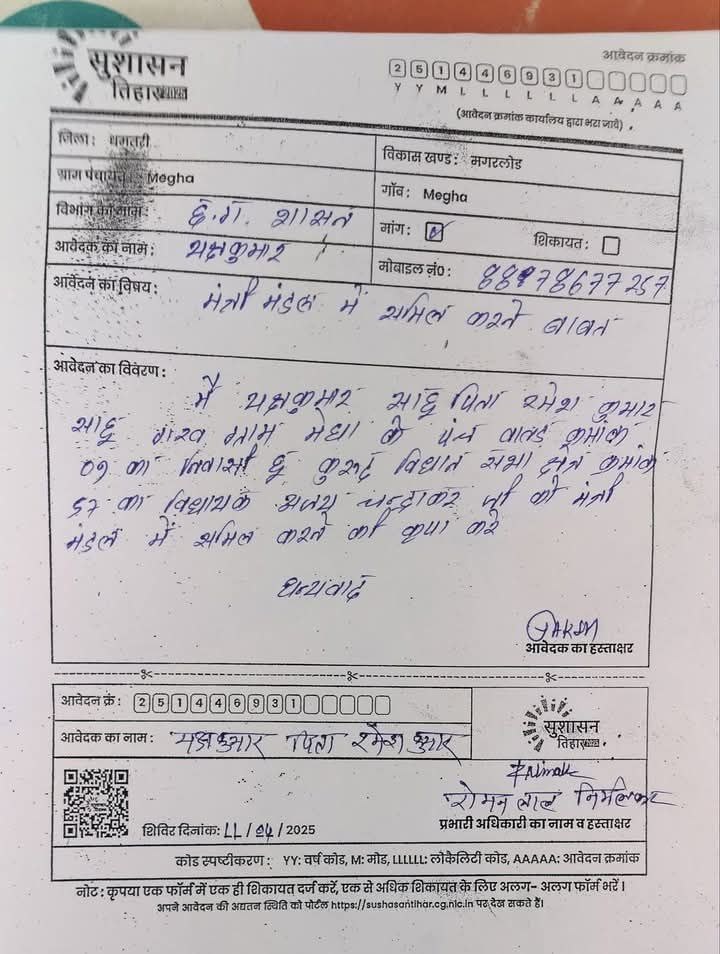 सुशासन
तिहार 2025
आवेदन क्रमांक
2 5 1 4 4 6 9 3 1
Y Y M L L L L L L A A A A A
(आवेदन क्रमांक कार्यालय द्वारा भरा जावे)
जिला: धमतरी
विकास खण्ड: मगरलोड
ग्राम पंचायत: Megha
गाँव: Megha
विभाग का नाम: छ.ग. शासन
मांग: ☑ शिकायत: ☐
आवेदक का नाम: यक्षकुमार
मोबाइल नं0:
आवेदन का विषय: मंत्री मंडल में समिल करने बाबत
आवेदन का विवरण:
मै यक्षकुमार साहू पिता रमेश कुमार
साहू ग्राम मेघा के पंच वार्ड क्रमांक
09 का निवासी हु कुरूद विधान सभा क्षेत्र क्रमांक
57 का विधायक अजय चन्द्राकर जी को मंत्री
मंडल में समिल करने की कृपा करे
धन्यवाद
आवेदक का हस्ताक्षर
आवेदन क्रं: 2 5 1 4 4 6 9 3 1
सुशासन
तिहार 2025
आवेदक का नाम: यक्षकुमार पिता रमेश कुमार
रोमन लाल निर्मलकर
शिविर दिनांक: 11/04/2025
प्रभारी अधिकारी का नाम व हस्ताक्षर
कोड स्पष्टीकरण: YY: वर्ष कोड, M: मोड, LLLLLL: लोकैलिटी कोड, AAAAA: आवेदन क्रमांक
नोट: कृपया एक फॉर्म में एक ही शिकायत दर्ज करें, एक से अधिक शिकायत के लिए अलग- अलग फॉर्म भरें।
अपने आवेदन की अद्यतन स्थिति को पोर्टल https://sushasantihar.cg.nic.in पर देख सकते हैं।